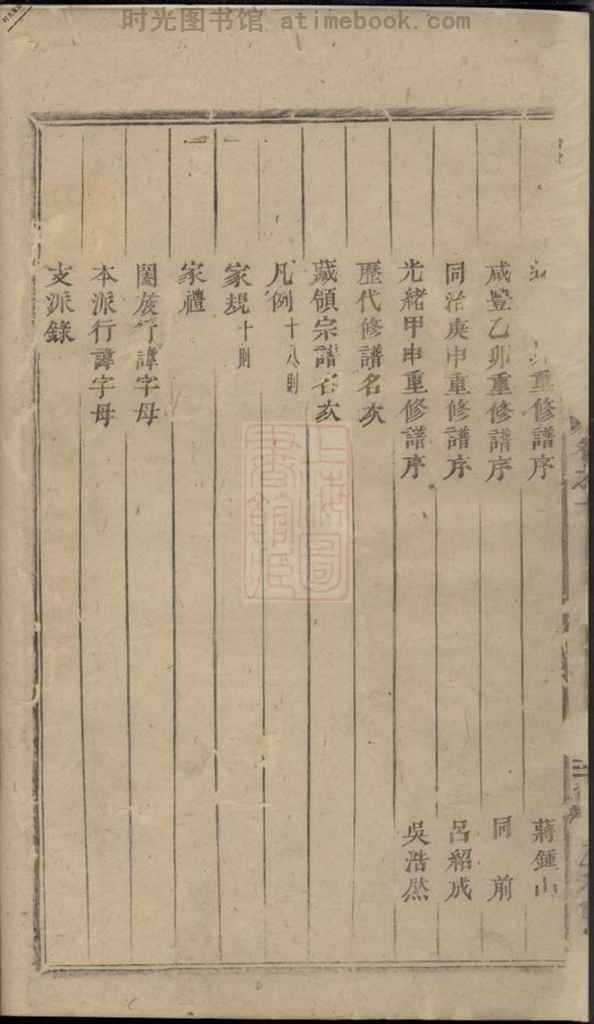 时光图书馆 atimebook.com
重修譜序 蔣鍾山
咸豐乙卯重修譜序 同前
同治庚申重修譜序 呂紹成
光緒甲申重修譜序 吳浩然
歷代修譜名次
藏領宗譜名次
凡例十八則
家規十則
家禮
闔族行諱字母
本派行諱字母
支派錄